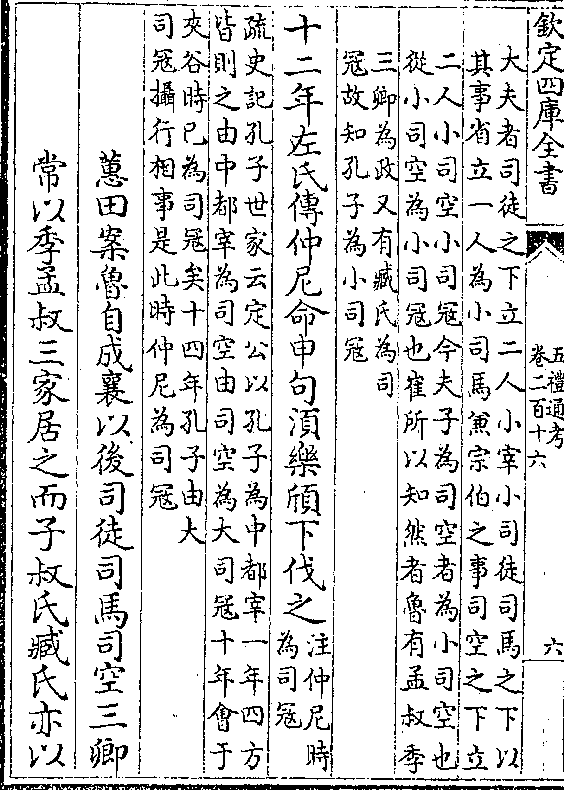 欽定四庫全書
五禮通考
卷二百十六
六
大夫者司徒之下立二人小宰小司徒司馬之下以
其事省立一人為小司馬兼宗伯之事司空之下立
二人小司空小司冦今夫子為司空者為小司空也
從小司空為小司冦也崔所以知然者魯有孟叔季
三卿為政又有臧氏為司
冦故知孔子為小司冦
十二年左氏傳仲尼命申句湏樂頎下伐之注仲尼時
為司冦
疏史記孔子世家云定公以孔子為中都宰一年四方
皆則之由中都宰為司空由司空為大司冦十年會于
夾谷時已為司冦矣十四年孔子由大
司冦攝行相事是此時仲尼為司冦
蕙田案魯自成襄以後司徒司馬司空三卿
常以季孟叔三家居之而子叔氏臧氏亦以